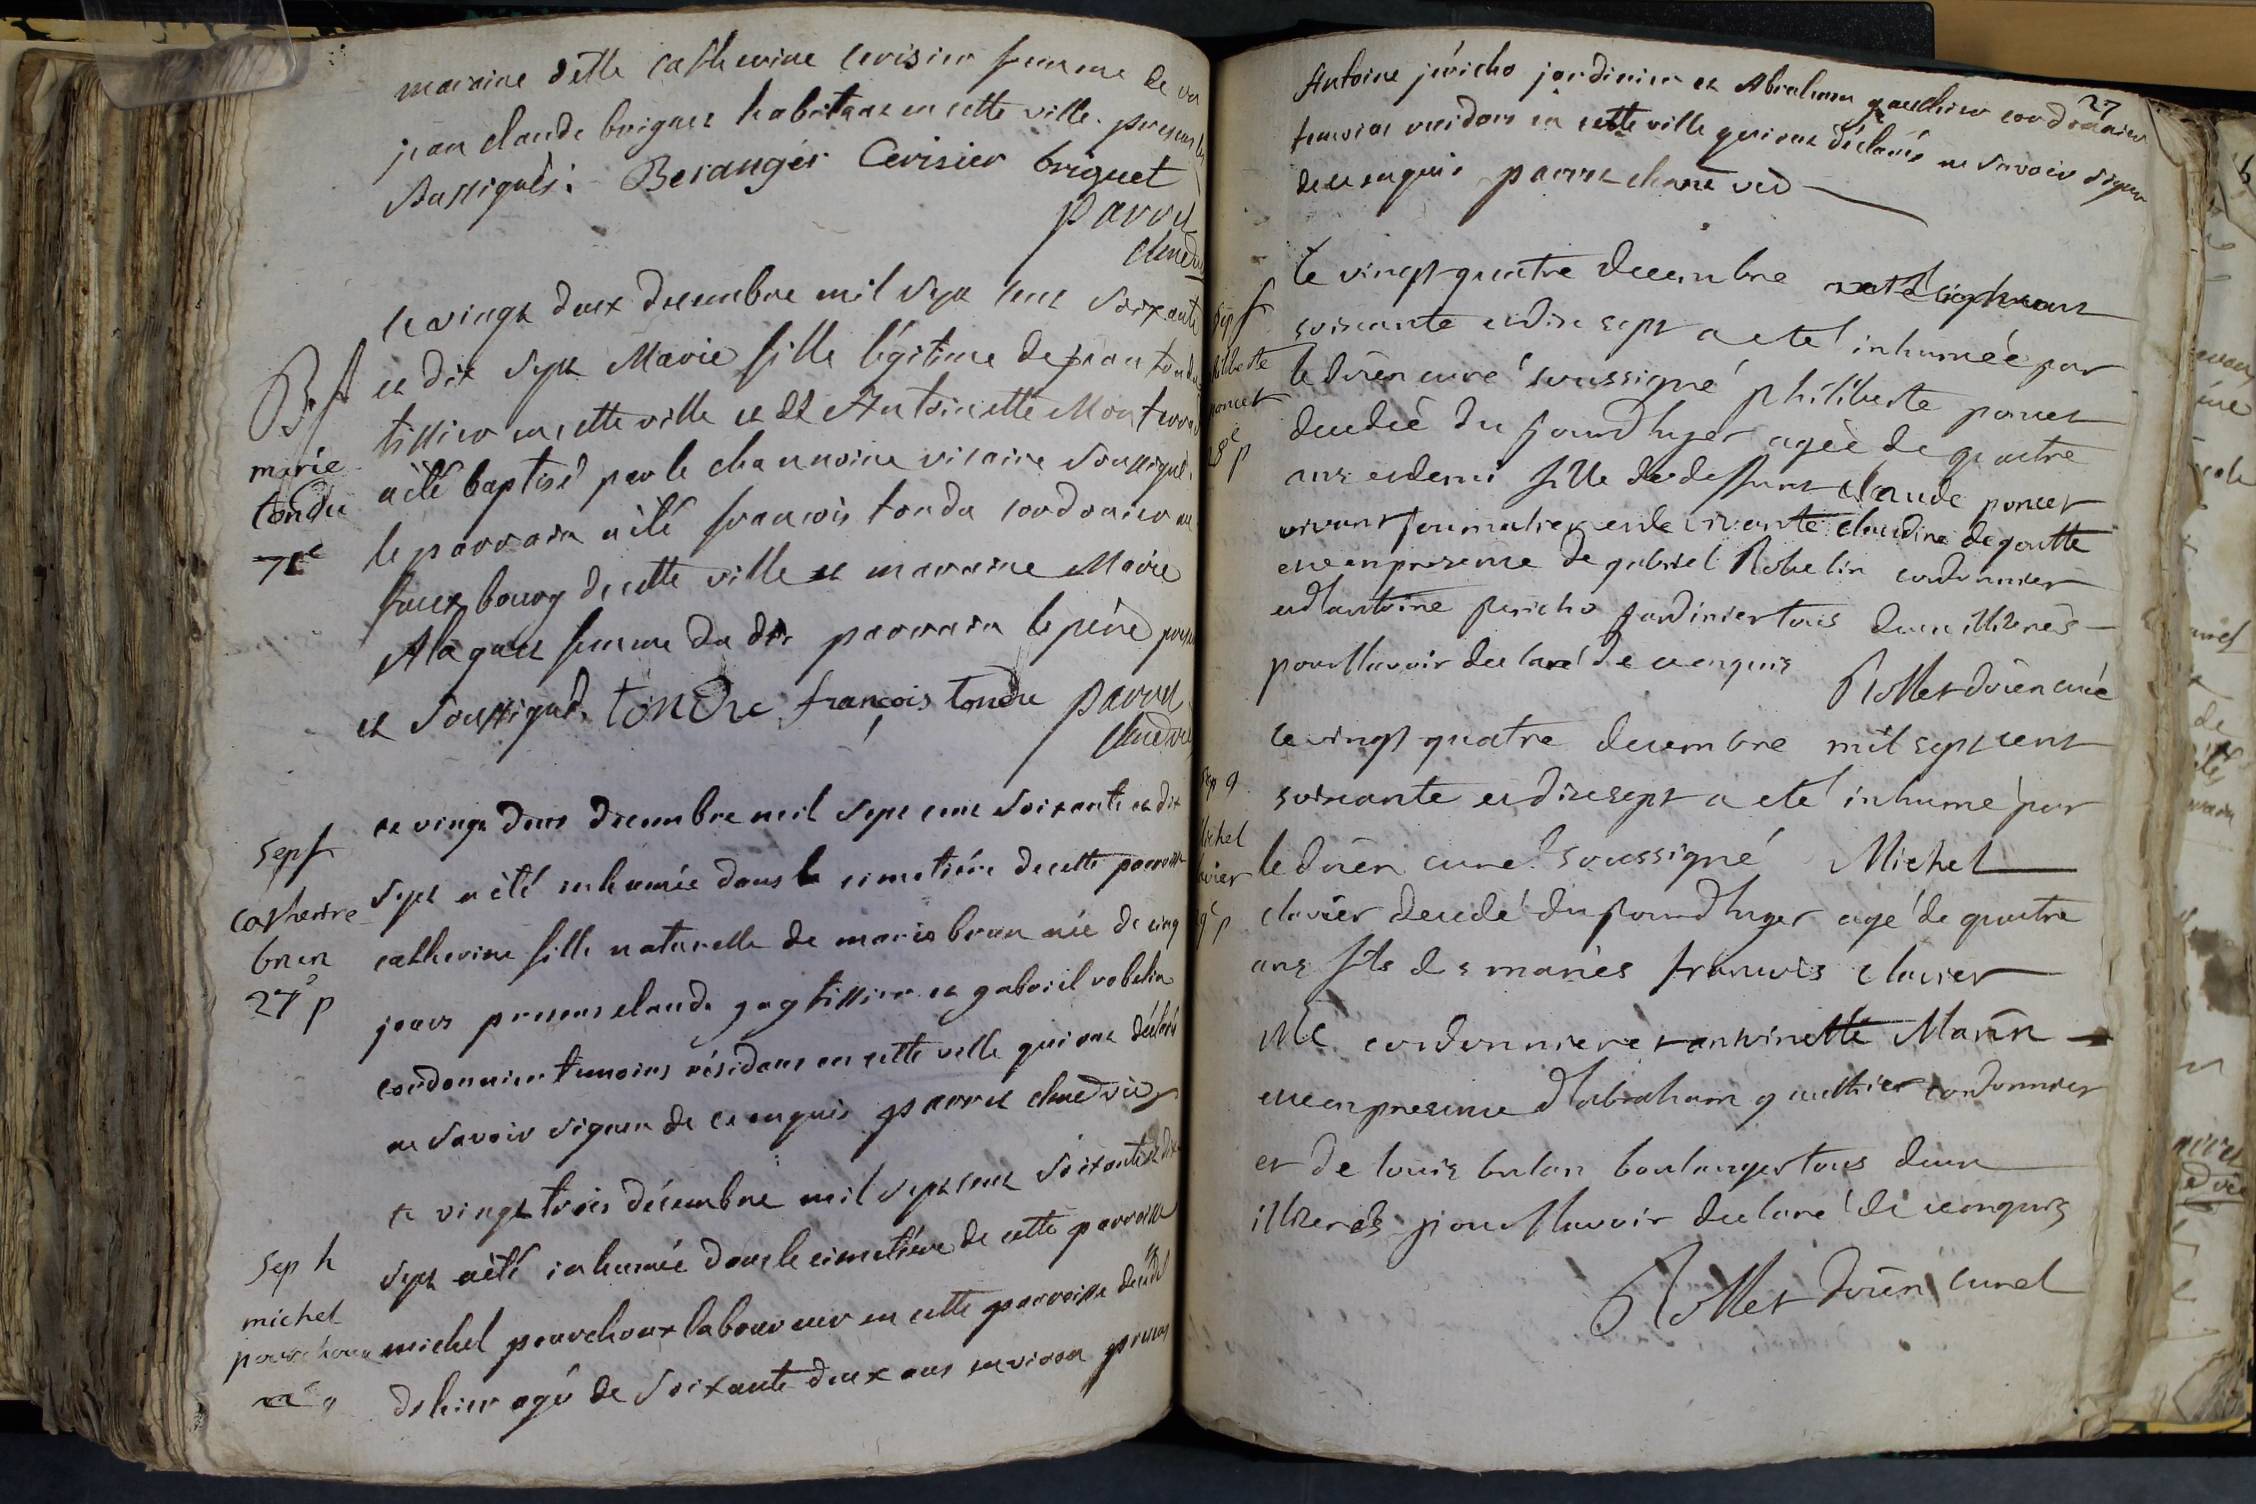 maraine dette catherine cerisier femme de
jean claude briguet habitant en cette ville. presens les
soussignés. Beranger Cerisier briguet
parret
chne vic
B f
marie
tondu
le vingt deux decembre mil sept cent soixante
et dix sept Marie fille légitime de jean tondu
tissier en cette ville et d'Antoinette
a été baptisé par le channoine vicaire soussigné.
le parrain a été francois tondu cordonier au
faux bourg de cette ville et maraine Marie
Alaguet femme du dit parrain le père present
et soussigné. tondu françois tondu parret
chne vic
sep f
catherine
brun
27e p
le vingt deux decembre mil sept cent soixante et dix
sept a été inhumée dans le cimetière de cette parroisse
catherine fille naturelle de marie brun née de cinq
jours presens claude gag tissier et gabriel robelin
cordonnier temoins résidans en cette ville qui ont déclaré
ne savoir signer de ce enquis parret chne vic
sep h
michel
pourchoux
le vingt trois décembre mil sept cent soixante et dix
sept a été inhumée dans le cimetière de cette parroisse
michel pourchoux laboureur en cette parroisse decedé
d'hier agé de soixante deux ans environ presens
27
Antoine jéricho jardinier et Abraham gauthier cordonnier
temoins residans en cette ville qui ont déclarés ne savoir signer
de ce enquis parret chane vic
sep f
philiberte
poncet
28e p
Le vingt quatre decembre mil sept cent
soixante et dix sept a eté inhumée par
le doïen curé soussigné philiberte poncet
decedée du jour d'hyer agée de quatre
ans et demi fille de deffunt claude poncet
vivant journalier et de vivante claudine degoutte
ce en presence de gabriel Robelin cordonnier
et d'antoine jericho jardinier tous deux illiterés
pour l'avoir declaré de ce enquis Rollet doïen curé
sep g
Michel
clavier
29e p
Le vingt quatre decembre mil sept cent
soixante et dix sept a eté inhumé par
le doïen curé soussigné Michel
clavier decedé du jour d'hyer agé de quatre
ans fils des mariés francois clavier
Me cordonnier et antoinette Marin
ce en presence d'abraham gauthier cordonnier
et de louis bulan boulanger tous deux
illiterés pour l'avoir declaré de ce enquis
Rollet doïen curé